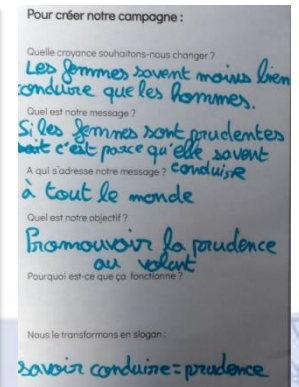 Pour créer notre campagne :
Quelle croyance souhaitons-nous changer ?
Les femmes savent moins bien
conduire que les hommes.
Quel est notre message ?
Si les femmes sont prudentes
c'est parce qu'elle savent
conduire
A qui s'adresse notre message ?
à tout le monde
Quel est notre objectif ?
Promouvoir la prudence
au volant
Pourquoi est-ce que ça fonctionne ?
Nous le transformons en slogan :
savoir conduire = prudence